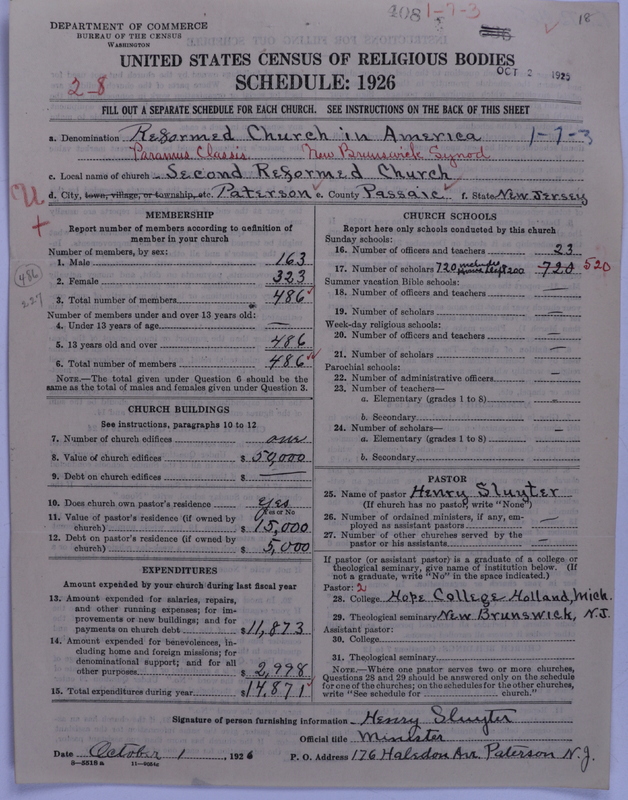 DEPARTMENT OF COMMERCE
BUREAU OF THE CENSUS
WASHINGTON
408 1-7-3
18
UNITED STATES CENSUS OF RELIGIOUS BODIES
OCT 2 1925
SCHEDULE: 1926
2-8
FILL OUT A SEPARATE SCHEDULE FOR EACH CHURCH. SEE INSTRUCTIONS ON THE BACK OF THIS SHEET
a. Denomination Reformed Church in America 1-7-3
Paramus Classis. New Brunswick Synod
c. Local name of church Second Reformed Church
d. City, town, village, or township, etc. Paterson e. County Passaic f. State New Jersey
MEMBERSHIP
Report number of members according to definition of
member in your church
Number of members, by sex:
1. Male 163
2. Female 323
3. Total number of members 486
486
227
Number of members under and over 13 years old:
4. Under 13 years of age —
5. 13 years old and over 486
6. Total number of members 486
NOTE.—The total given under Question 6 should be the
same as the total of males and females given under Question 3.
CHURCH BUILDINGS
See instructions, paragraphs 10 to 12
7. Number of church edifices one
8. Value of church edifices $ 50,000
9. Debt on church edifices $ —
10. Does church own pastor's residence Yes
Yes or No
11. Value of pastor's residence (if owned by
church) $ 15,000
12. Debt on pastor's residence (if owned by
church) $ 5,000
EXPENDITURES
Amount expended by your church during last fiscal year
13. Amount expended for salaries, repairs,
and other running expenses; for im-
provements or new buildings; and for
payments on church debt $ 11,873
14. Amount expended for benevolences, in-
cluding home and foreign missions; for
denominational support; and for all
other purposes $ 2,998
15. Total expenditures during year $ 14,871
CHURCH SCHOOLS
Report here only schools conducted by this church
Sunday schools:
16. Number of officers and teachers 23
17. Number of scholars 720 includes 200 720 520
Summer vacation Bible schools:
18. Number of officers and teachers —
19. Number of scholars —
Week-day religious schools:
20. Number of officers and teachers —
21. Number of scholars —
Parochial schools:
22. Number of administrative officers —
23. Number of teachers—
a. Elementary (grades 1 to 8) —
b. Secondary
24. Number of scholars— —
a. Elementary (grades 1 to 8)
b. Secondary
PASTOR
25. Name of pastor Henry Sluyter
(If church has no pastor, write "None")
26. Number of ordained ministers, if any, em-
ployed as assistant pastors —
27. Number of other churches served by the
pastor or his assistants —
If pastor (or assistant pastor) is a graduate of a college or
theological seminary, give name of institution below. (If
not a graduate, write "No" in the space indicated.)
Pastor: 2
28. College Hope College Holland, Mich.
29. Theological seminary New Brunswick, N.J.
Assistant pastor:
30. College
31. Theological seminary
NOTE.—Where one pastor serves two or more churches,
Questions 28 and 29 should be answered only on the schedule
for one of the churches; on the schedules for the other churches,
write "See schedule for church."
Signature of person furnishing information Henry Sluyter
Official title Minister
Date October 1, 1926 P. O. Address 176 Haledon Av. Paterson N.J.